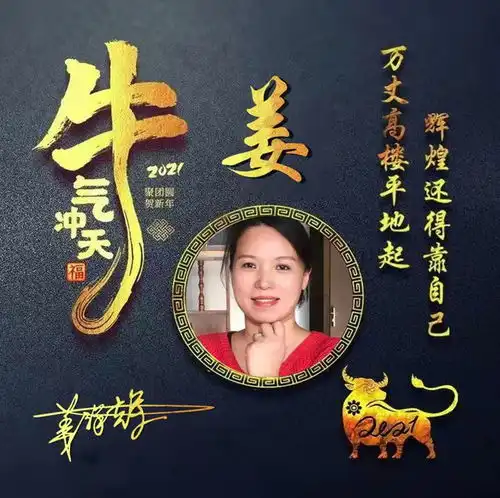 牛
气
冲天
2021
聚团圆
贺新年
福
姜
万丈高楼平地起
辉煌还得靠自己
2021